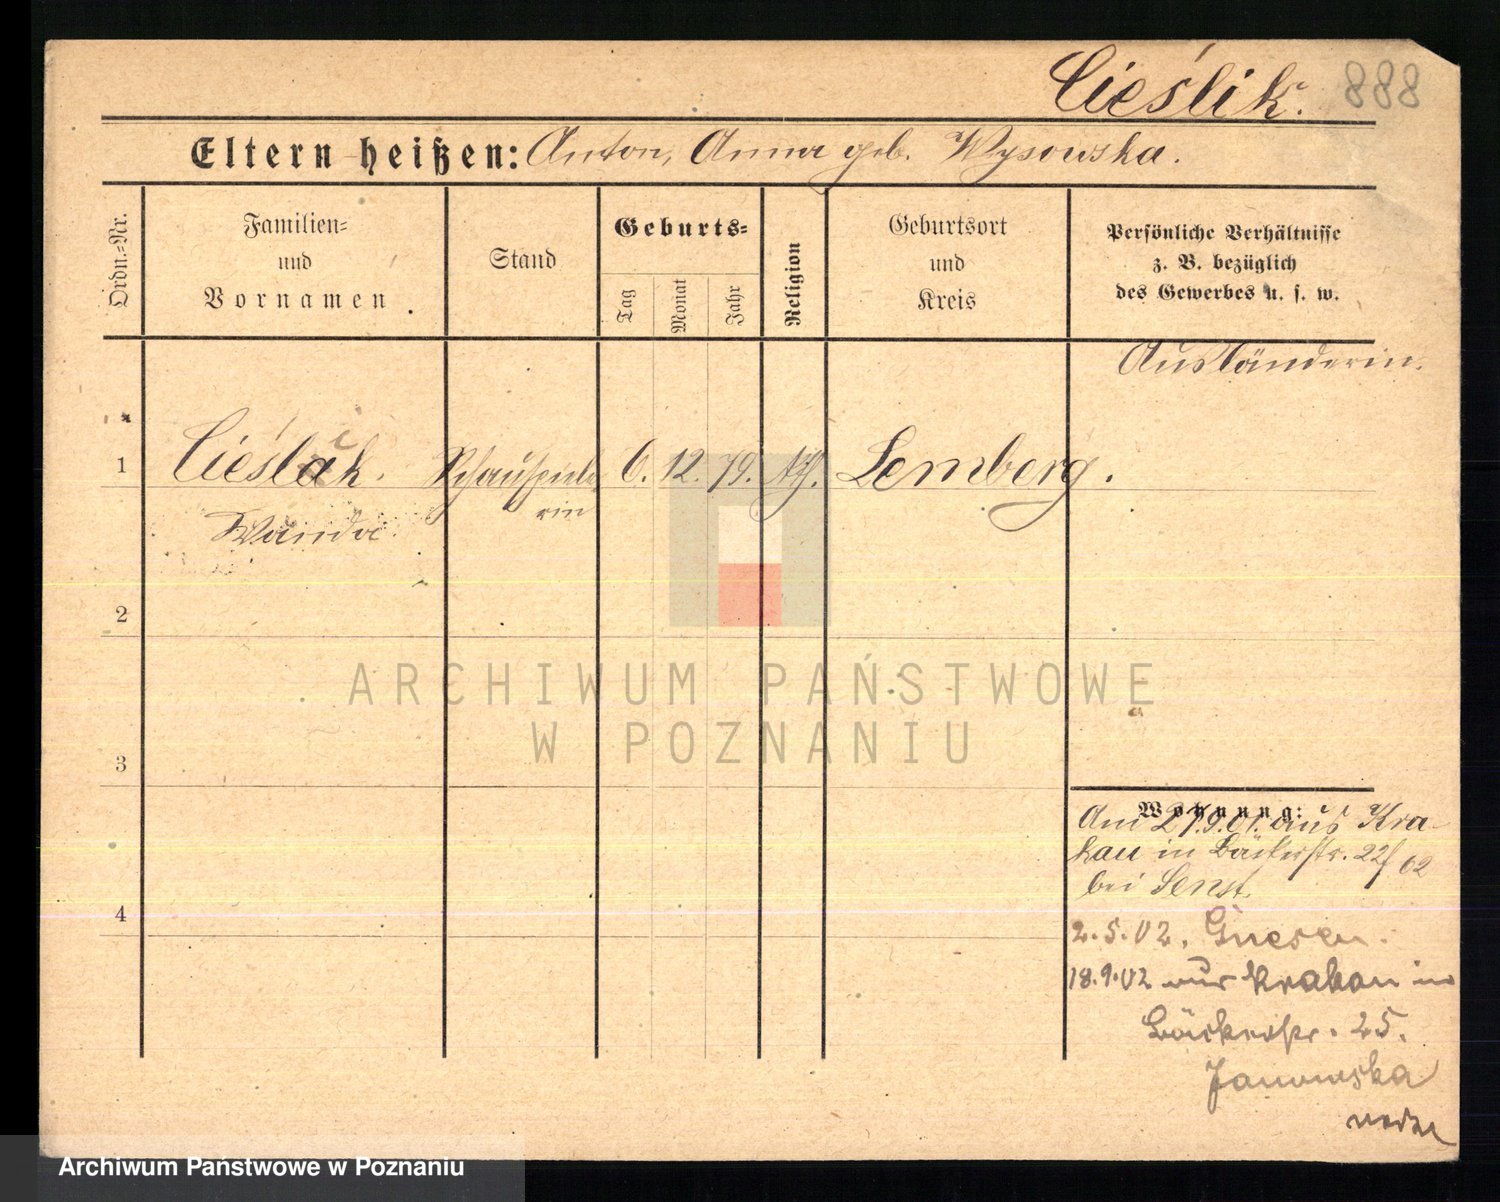 Cieślik. 888
Eltern heißen: Anton, Anna geb. Wysowska.
Ordn.=Nr.
Familien=
und
Vornamen
Stand
Geburts=
Tag
Monat
Jahr
Religion
Geburtsort
und
Kreis
Persönliche Verhältnisse
z. B. bezüglich
des Gewerbes u. s. w.
Ausländerin.
1 Cieślak. Schauspiele 6. 12. 79. Lemberg.
rin
Wanda
2
ARCHIWUM PAŃSTWOWE
W POZNANIU
3
Wohnung:
Am 27.9.01. aus Kra-
kau in Bäckerstr. 22f 62
bei Senst.
4
2.5.02. Gnesen.
18.9.02 aus Krakau in
Bäckerstr. 25.
Janowska
Archiwum Państwowe w Poznaniu